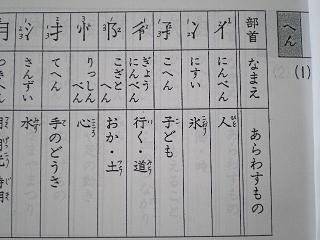 へん
(1)
部首 なまえ あらわすもの
亻 にんべん 人
冫 にすい 氷
子 こへん 子ども
彳 ぎょうにんべん 行く・道
阝 こざとへん おか・土
忄 りっしんべん 心
扌 てへん 手のどうさ
氵 さんずい 水
月 つきへん